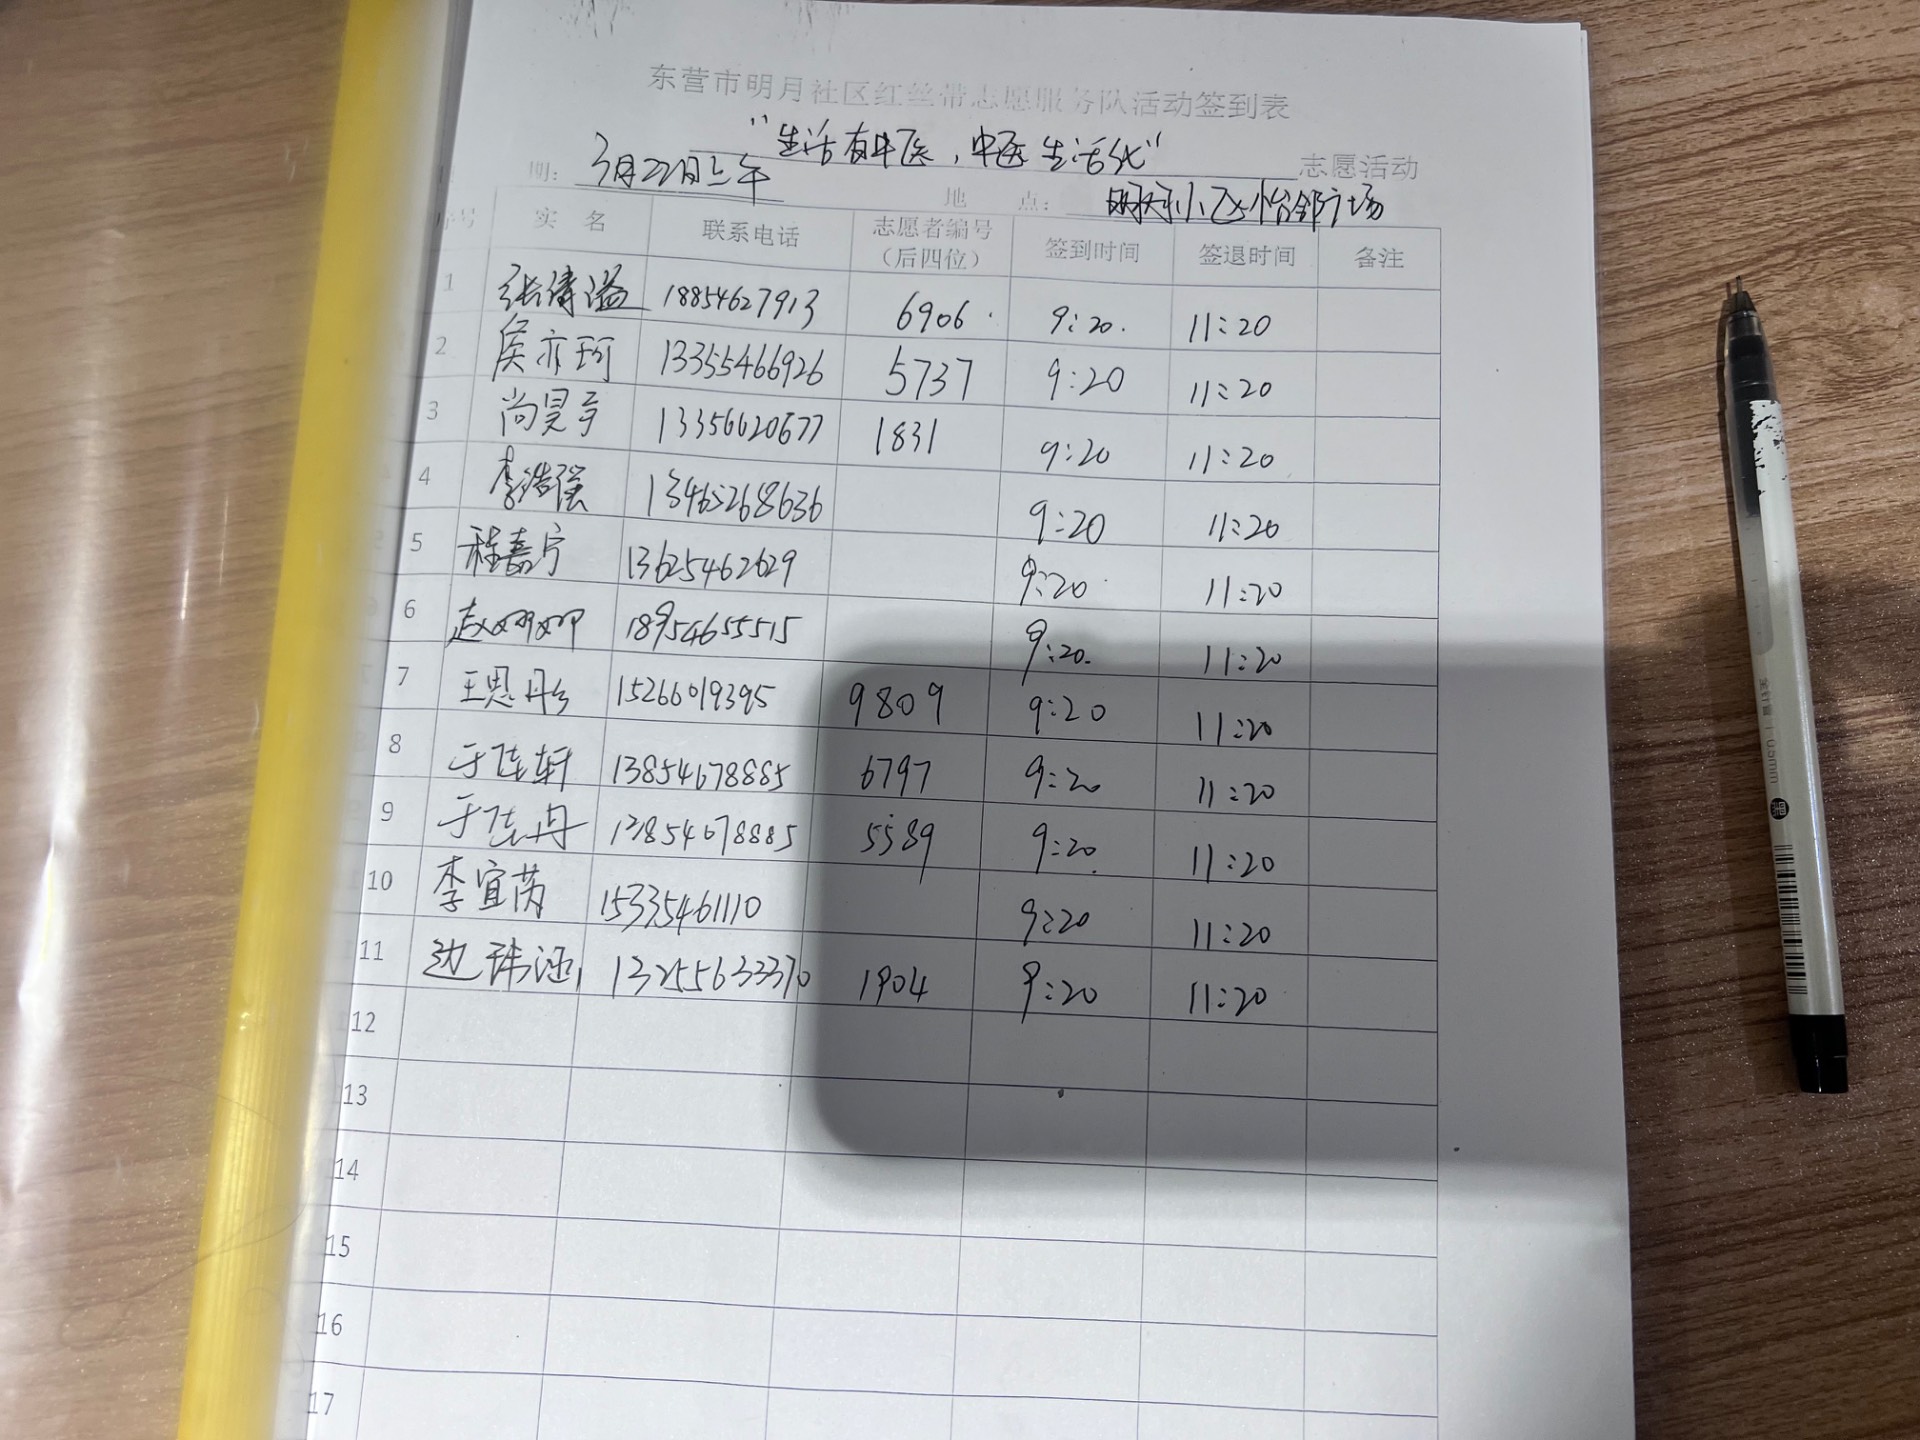 东营市明月社区红丝带志愿服务队活动签到表
"生活有中医，中医生活化" 志愿活动
期： 3月22日上午 地 点： 小区怡邻广场
序号 实 名 联系电话 志愿者编号（后四位） 签到时间 签退时间 备注
1 张清溢 18854627913 6906 9:20 11:20
2 侯亦珂 13355466926 5737 9:20 11:20
3 尚昊 13356620677 1831 9:20 11:20
4 李浩强 13465268636 9:20 11:20
5 程嘉宁 13625462629 9:20 11:20
6 赵娜娜 18954655515 9:20 11:20
7 王思丹 15266019395 9809 9:20 11:20
8 于佳轩 13854678885 6797 9:20 11:20
9 于佳丹 13854678885 5589 9:20 11:20
10 李宜芮 15335461110 9:20 11:20
11 边珠涵 13255633370 1904 9:20 11:20
12
13
14
15
16
17
0.5mm
黑